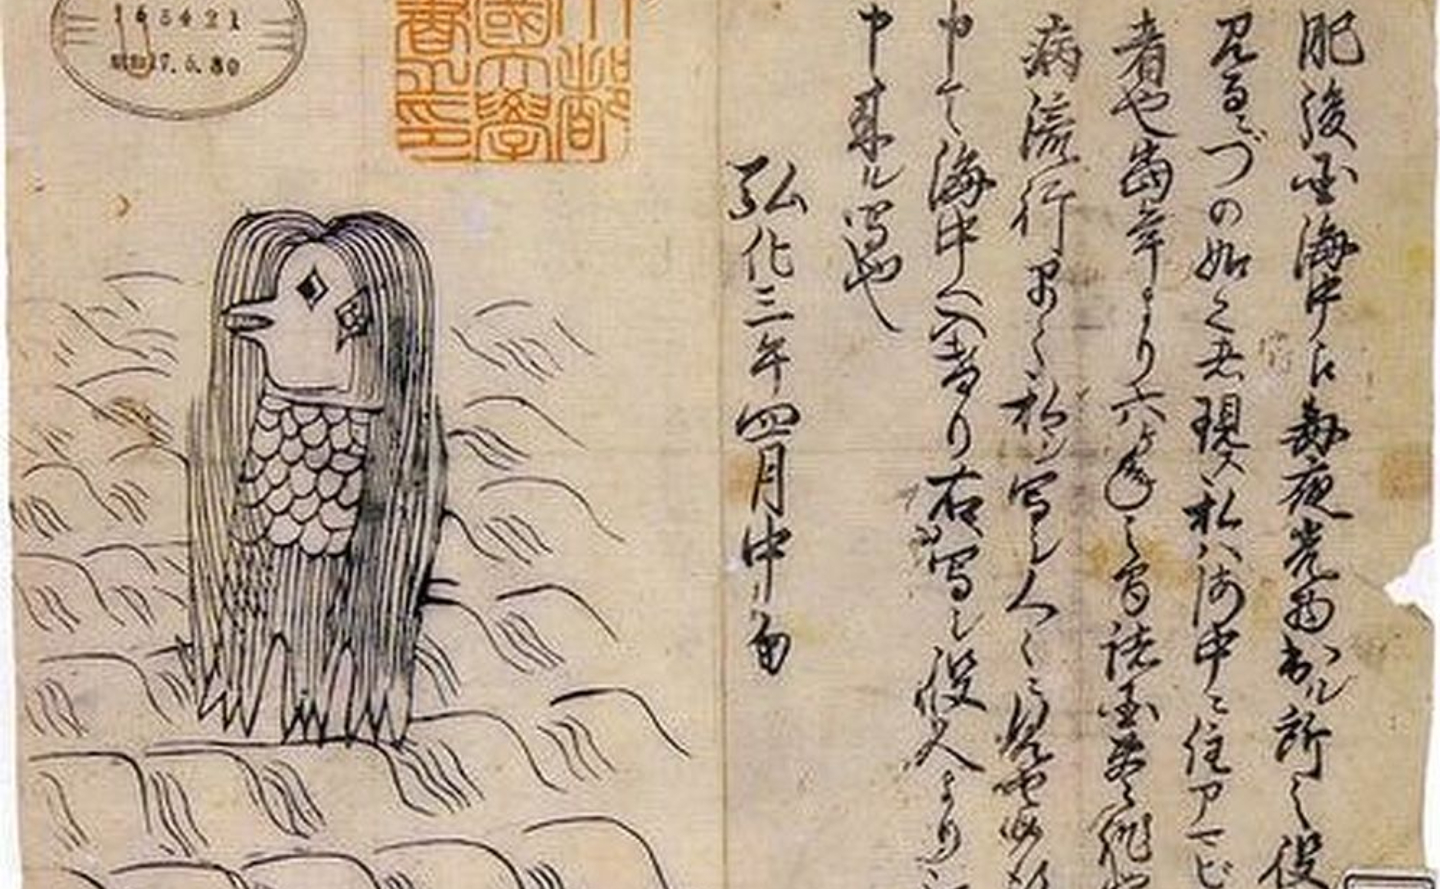 165421
7.5.80
都
國大學
書之印
肥後国海中え毎夜光物出ル所之役
見るニづの如く者現ス私ハ海中ニ住アマビ
者也當年より六ヶ年之間諸国豊作也
病流行早々私ヲ写シ人々ニ見セ候得
申て海中へ入けり右写シ役人より
申来ル写也
弘化三年四月中旬